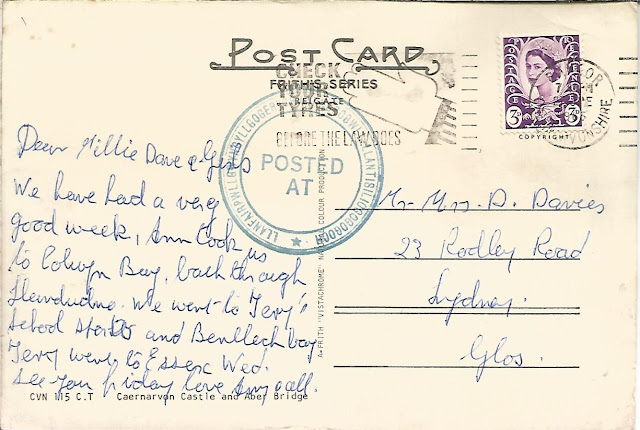 POST CARD
FRITH'S SERIES
REIGATE
CHECK
YOUR
TYRES
BEFORE THE LAW DOES
POSTED
AT
3D 3D
COPYRIGHT
Dear Millie Dave & Girls
We have had a very
good week, Ann took us
to Colwyn Bay, back through
Llandudno. We went to Terry's
school sports and Benllech bay
Terry went to Essex Wed.
See you friday love Amy & all.
CVN 115 C.T Caernarvon Castle and Aber Bridge
FRITH "VISTACHROME" COLOUR PRODUCTION
Mr - Mrs. D. Davies
23 Rodley Road
Lydney.
Glos.